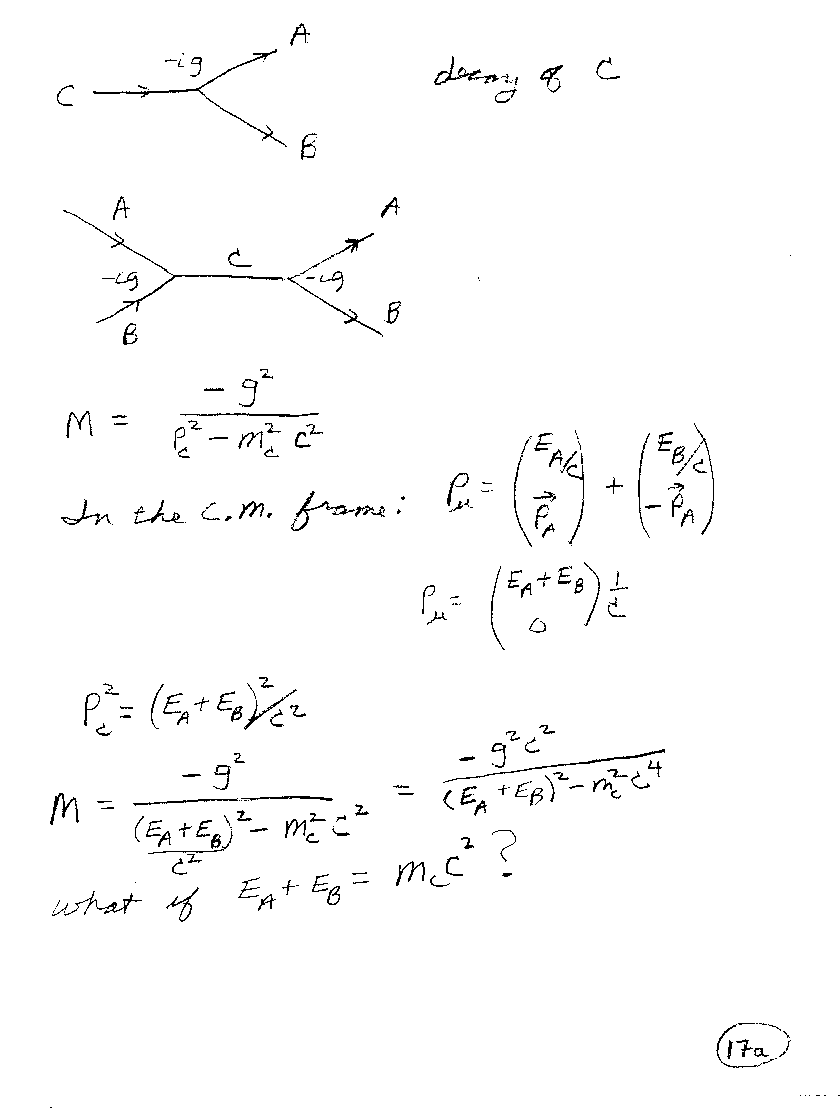 -ig A
C decay of C
B
A A
C
-ig -ig
B B
M = -g² / (P_c² - m_c² c²)
In the C.M. frame: P_μ = (E_A/c, P⃗_A) + (E_B/c, -P⃗_A)
P_μ = (E_A + E_B, 0) 1/c
P_c² = (E_A + E_B)²/c²
M = -g² / ((E_A + E_B)²/c² - m_c² c²) = -g² c² / ((E_A + E_B)² - m_c² c⁴)
what if E_A + E_B = m_c c² ?
17a